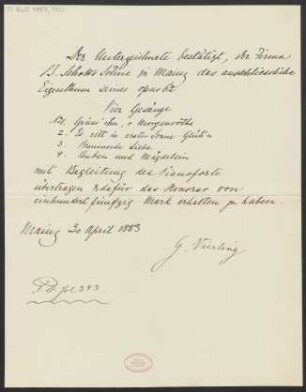 Der Unterzeichnete bestätigt, der Firma
B. Schotts Söhne in Mainz das ausschliessliche
Eigenthum seines opus
Vier Gesänge
No 1. Grüss' ihn, o Morgenröthe
2. Es ritt in erster Sonne
3. Brennende Liebe
4. Knaben und Mägdelein
mit Begleitung des Pianoforte
übertragen & dafür das Honorar von
einhundertfünfzig Mark erhalten zu haben.
Mainz 30 April 1883
G. Vierling